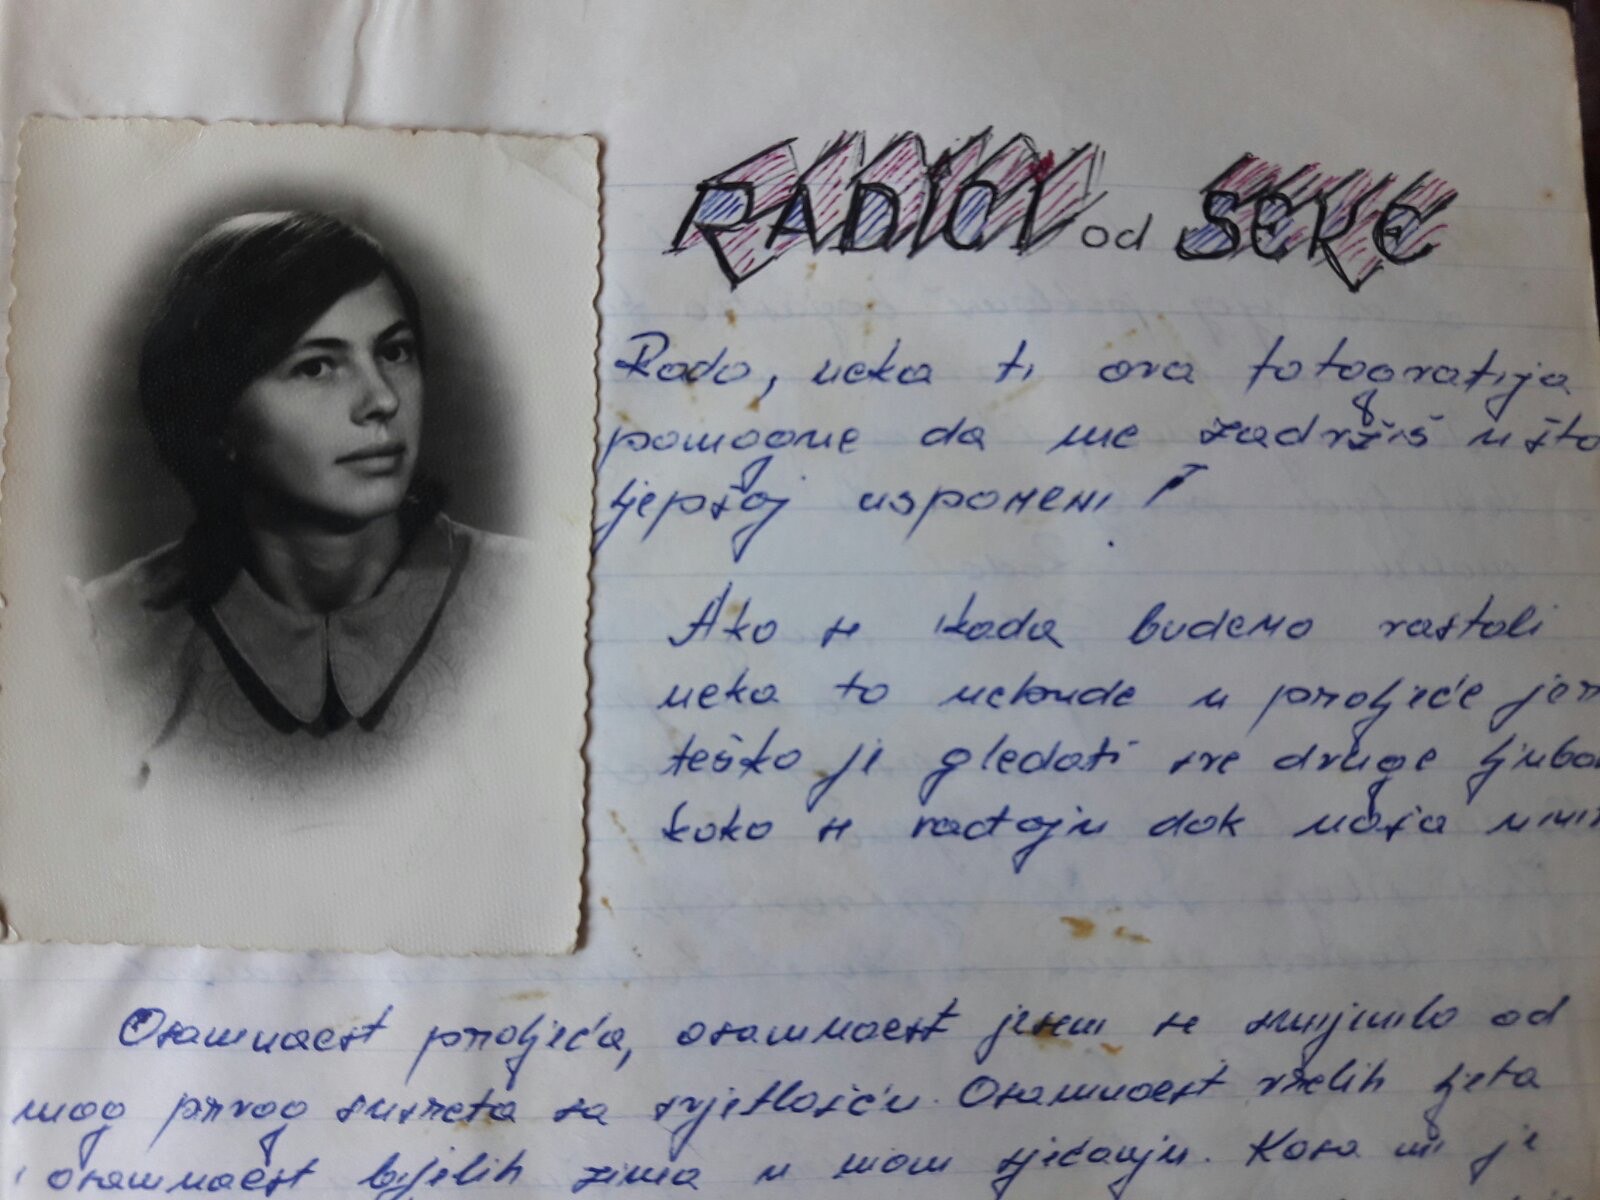 RADICI od SEKE
Rado, neka ti ova fotografija
pomogne da me zadržiš u što
ljepšoj uspomeni!
Ako se ikada budemo rastali
neka to nebude u proljeće jer
teško je gledati sve druge
kako se rađaju dok naša
Osamnaest proljeća, osamnaest jeseni se smijenilo od
mog prvog susreta sa svjetlošću. Osamnaest vrelih ljeta
i osamnaest bijelih zima u mom sjećanju. Kosa mi je